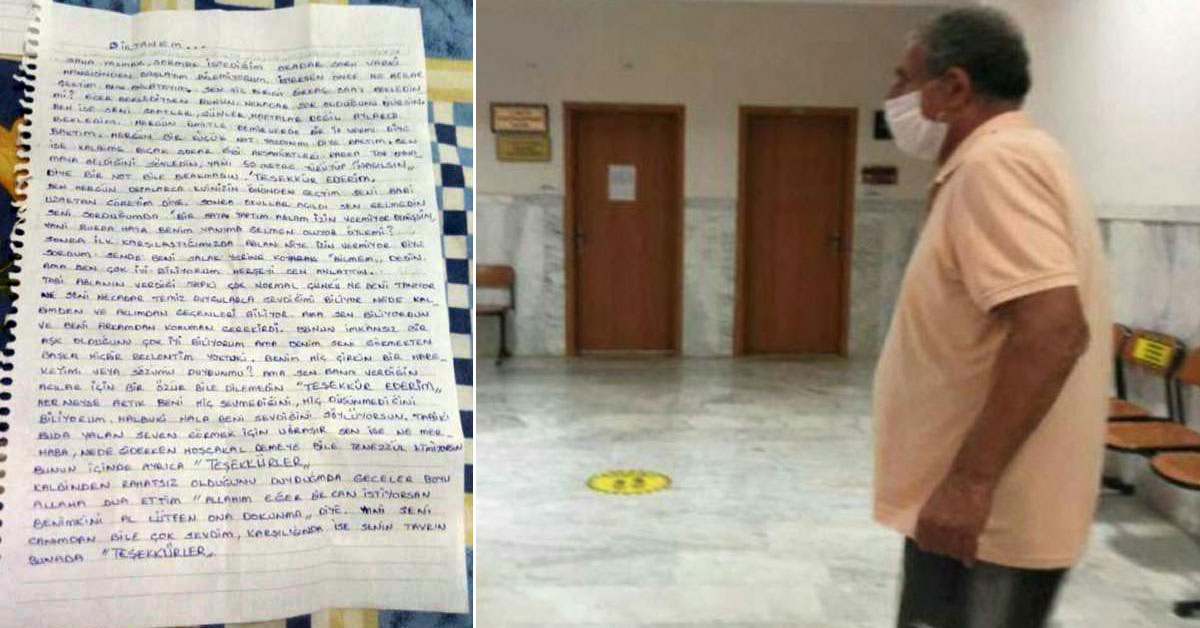 BİRTANEM...
SANA YAZMAK, SORMAK İSTEDİĞİM OKADAR SORU VARKİ
HANGİSİNDEN BAŞLAYIM BİLEMİYORUM. İSTERSEN ÖNCE NE ACILAR
ÇEKTİM ONU ANLATAYIM. SEN HİÇ BİRİNİ BİRKAÇ SAAT BEKLEDİN
Mİ? EĞER BEKLEDİYSEN BUNUN NEKADAR ZOR OLDUĞUNU BİLİRSİN
BEN İSE SENİ SAATLER, GÜNLER, HAFTALAR DEĞİL AYLARCA
BEKLEDİM. HERGÜN ÜMİTLE DEMİRLERDE BİR İZ VARMI DİYE
BAKTIM. HERGÜN BİR KÜÇÜK NOT YAZDINMI DİYE BAKTIM. SEN
İSE KALBİME BIÇAK SOKAR GİBİ AKŞAMÜSTLERİ PARKA
GELDİĞİNİ SÖYLEDİN, YANİ 50 METRE YÜRÜYÜP "NASILSIN"
DİYE BİR NOT BİLE BIRAKMADIN. "TEŞEKKÜR EDERİM"
BEN HERGÜN DEFALARCA EVİNİZİN ÖNÜNDEN GEÇTİM SENİ BARİ
UZAKTAN GÖREYİM DİYE. SONRA OKULLAR AÇILDI SEN GELMEDİN
SENİ SORDUĞUMDA "BİR HATA YAPTIM ABLAM İZİN VERMİYOR DEMİŞSİN
YANİ BURDA HATA BENİM YANIMA GELMEN OLUYOR ÖYLEMİ?
SONRA İLK KARŞILAŞTIĞIMIZDA ABLAN NİYE İZİN VERMİYOR DİYE
SORDUM. SENDE BENİ SALAK YERİNE KOYARAK "BİLMEM" DEDİN.
AMA BEN ÇOK İYİ BİLİYORUM HERŞEYİ SEN ANLATTIN.
TABİ ABLANIN VERDİĞİ TEPKİ ÇOK NORMAL ÇÜNKÜ NE BENİ TANIYOR
NE SENİ NEKADAR TEMİZ DUYGULARLA SEVDİĞİMİ BİLİYOR NEDE KAL-
BİMDEN VE AKLIMDAN GEÇENLERİ BİLİYOR. AMA SEN BİLİYORDUN
VE BENİ ARKAMDAN KORUMAN GEREKİRDİ. BUNUN İMKANSIZ BİR
AŞK OLDUĞUNU ÇOK İYİ BİLİYORUM AMA BENİM SENİ GÖRMEKTEN
BAŞKA HİÇBİR BEKLENTİM YOKTUKİ, BENİM HİÇ ÇİRKİN BİR HARE-
KETİMİ VEYA SÖZÜMÜ DUYDUNMU? AMA SEN BANA VERDİĞİN
ACILAR İÇİN BİR ÖZÜR BİLE DİLEMEDİN "TEŞEKKÜR EDERİM"
HER NEYSE ARTIK BENİ HİÇ SEVMEDİĞİNİ, HİÇ DÜŞÜNMEDİĞİNİ
BİLİYORUM, HALBUKİ HALA BENİ SEVDİĞİNİ SÖYLÜYORSUN. TABİKİ
BUDA YALAN SEVEN GÖRMEK İÇİN UĞRAŞIR SEN İSE NE MER-
HABA, NEDE GİDERKEN HOŞÇAKAL DEMEYE BİLE TENEZZÜL ETMİYORSUN
BUNUN İÇİNDE AYRICA "TEŞEKKÜRLER"
KALBİNDEN RAHATSIZ OLDUĞUNU DUYDUĞUMDA GECELER BOYU
ALLAHA DUA ETTİM "ALLAHIM EĞER BİR CAN İSTİYORSAN
BENİMKİNİ AL LÜTFEN ONA DOKUNMA" DİYE. YANİ SENİ
CANIMDAN BİLE ÇOK SEVDİM, KARŞILIĞINDA İSE SENİN TAVRIN
BUNADA "TEŞEKKÜRLER"